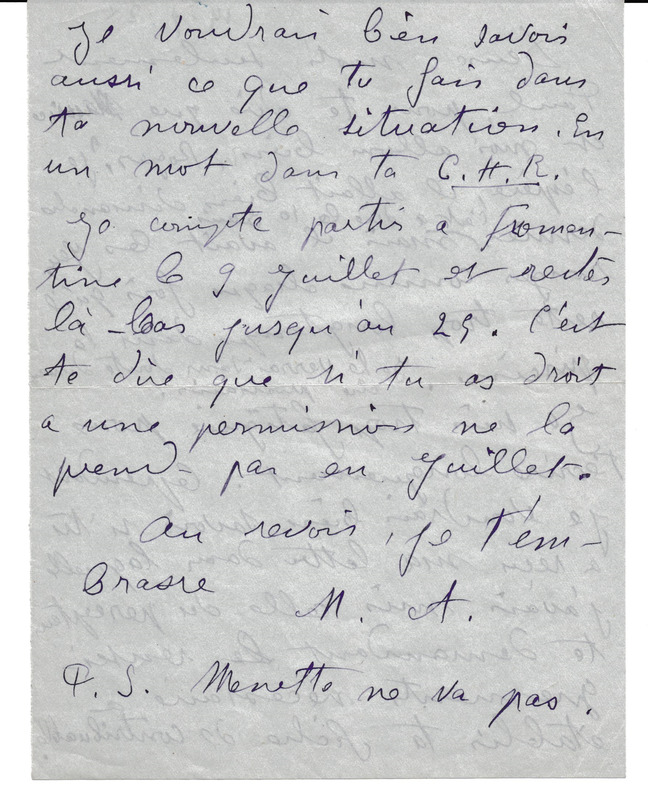 Je voudrais bien savoir
aussi ce que tu fais dans
ta nouvelle situation. En
un mot dans ta C.H.R.
Je compte partir a Fromen-
tine le 9 Juillet et rester
là-bas jusqu'au 25. C'est
te dire que si tu as droit
a une permission ne la
prend pas en Juillet.
Au revoir, je t'em-
brasse
M. A.
P. S. Menette ne va pas.